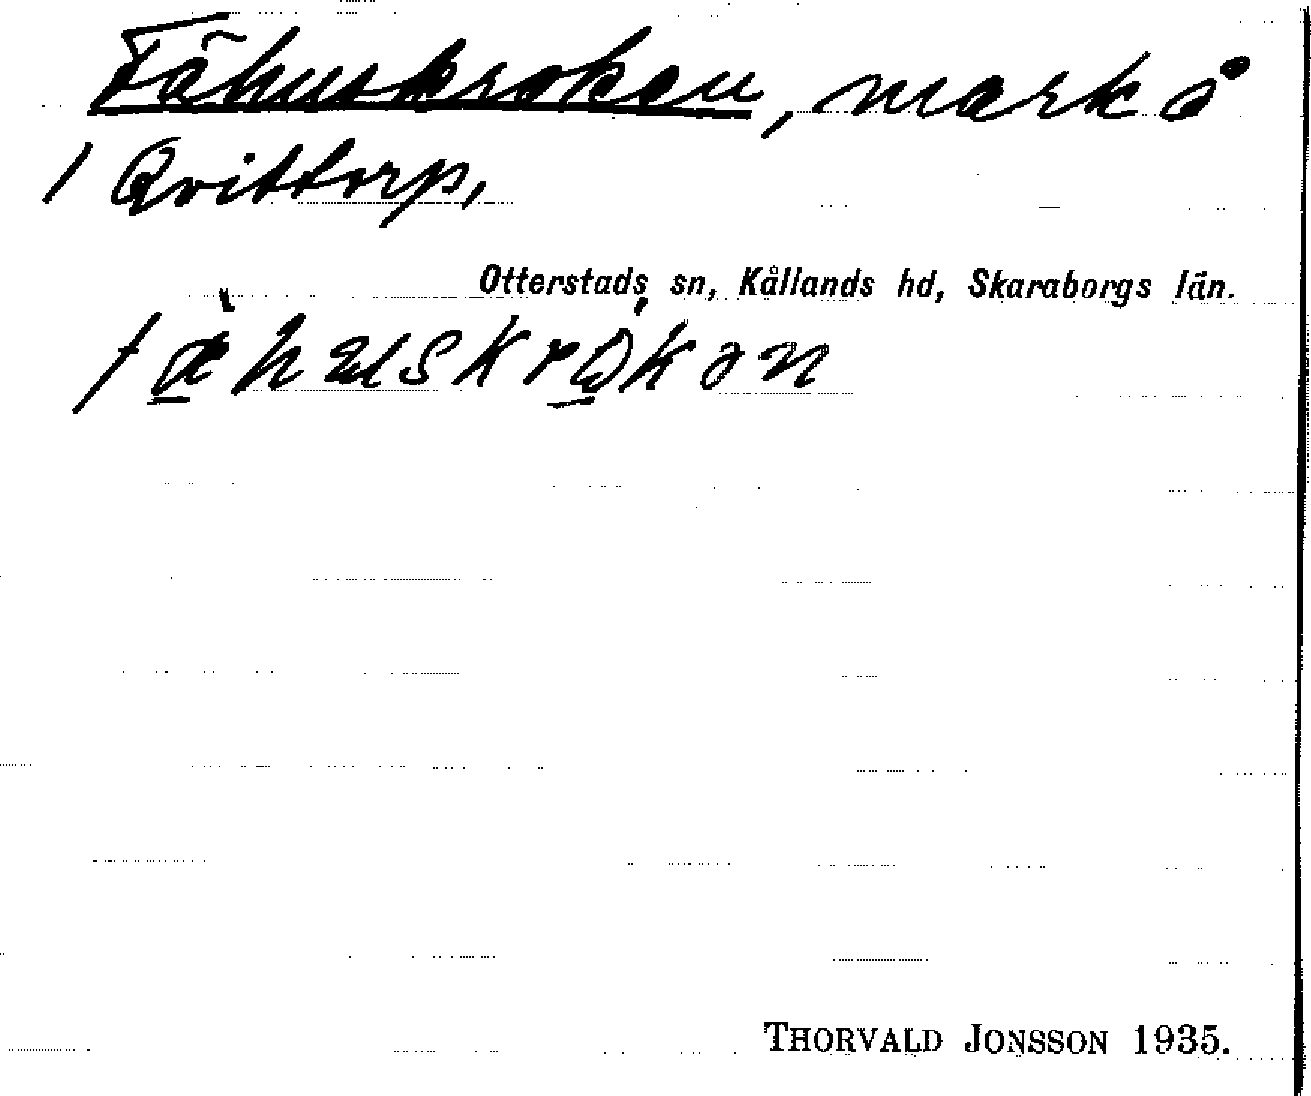 Fähuskroken, mark å
1 Qvittorp,
Otterstads sn, Kållands hd, Skaraborgs län.
THORVALD JONSSON 1935.